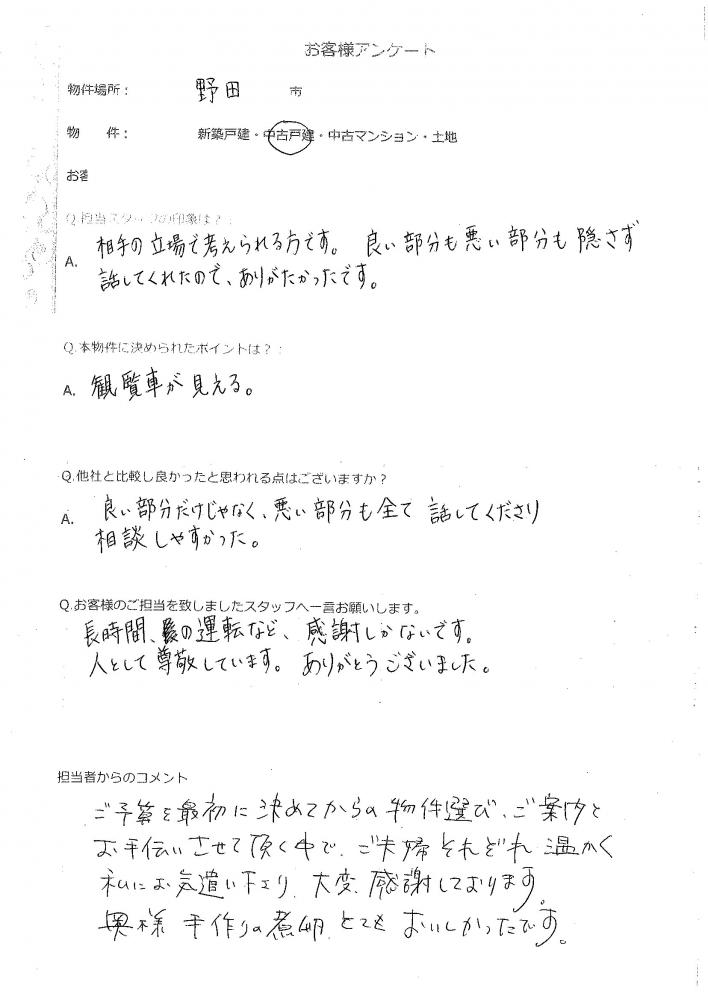 お客様アンケート
物件場所： 野田 市
物　件： 新築戸建・中古戸建・中古マンション・土地
お客
Q.担当スタッフの印象は？：
A. 相手の立場で考えられる方です。 良い部分も悪い部分も隠さず
話してくれたので、ありがたかったです。
Q.本物件に決められたポイントは？：
A. 観覧車が見える。
Q.他社と比較し良かったと思われる点はございますか？
A. 良い部分だけじゃなく、悪い部分も全て 話してくださり
相談しやすかった。
Q.お客様のご担当を致しましたスタッフへ一言お願いします。
長時間、の運転など、感謝しかないです。
人として尊敬しています。 ありがとうございました。
担当者からのコメント
ご予算を最初に決めてからの物件選び、ご案内と
お手伝いさせて頂く中で、ご夫婦それぞれ温かく
私にお気遣い下さり、大変、感謝しております。
奥様 手作りの煮卵、とても おいしかったです。